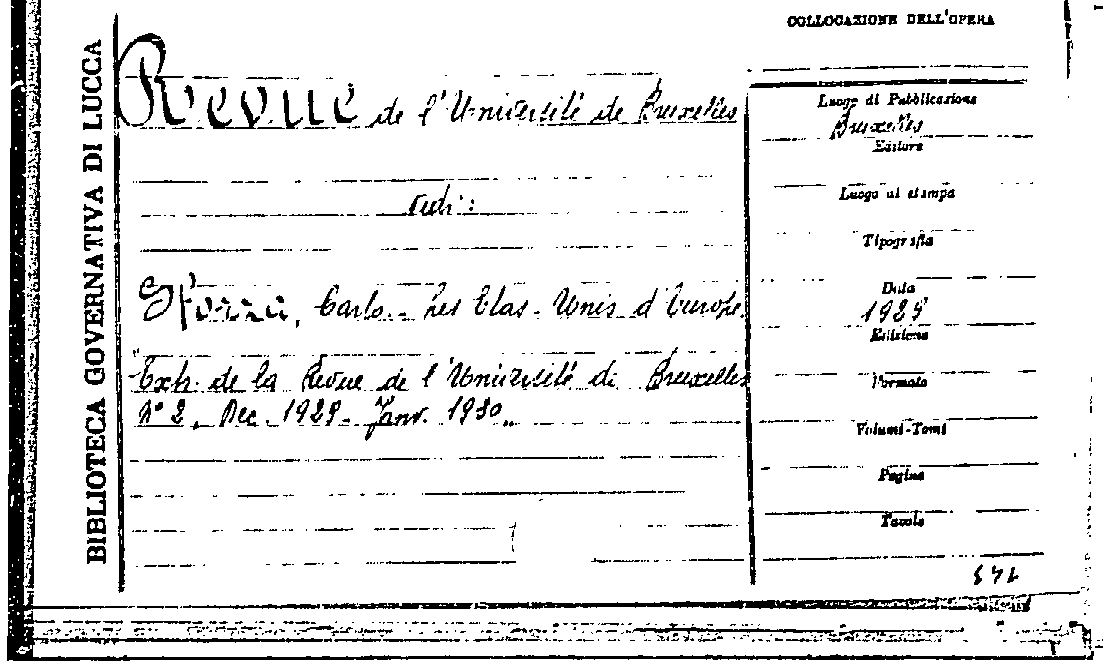 COLLOCAZIONE DELL'OPERA
BIBLIOTECA GOVERNATIVA DI LUCCA
Revue de l'Université de Bruxelles
vedi:
Sforza, Carlo - Les Etas-Unis d'Europe.
"Extr. de la Revue de l'Université di Bruxelles
N° 2, Dec. 1929 - Janv. 1930"
Luogo di Pubblicazione
Bruxelles
Editore
Luogo di stampa
Tipografia
Data
1929
Edizione
Formato
Volumi-Tomi
Pagine
Tavole